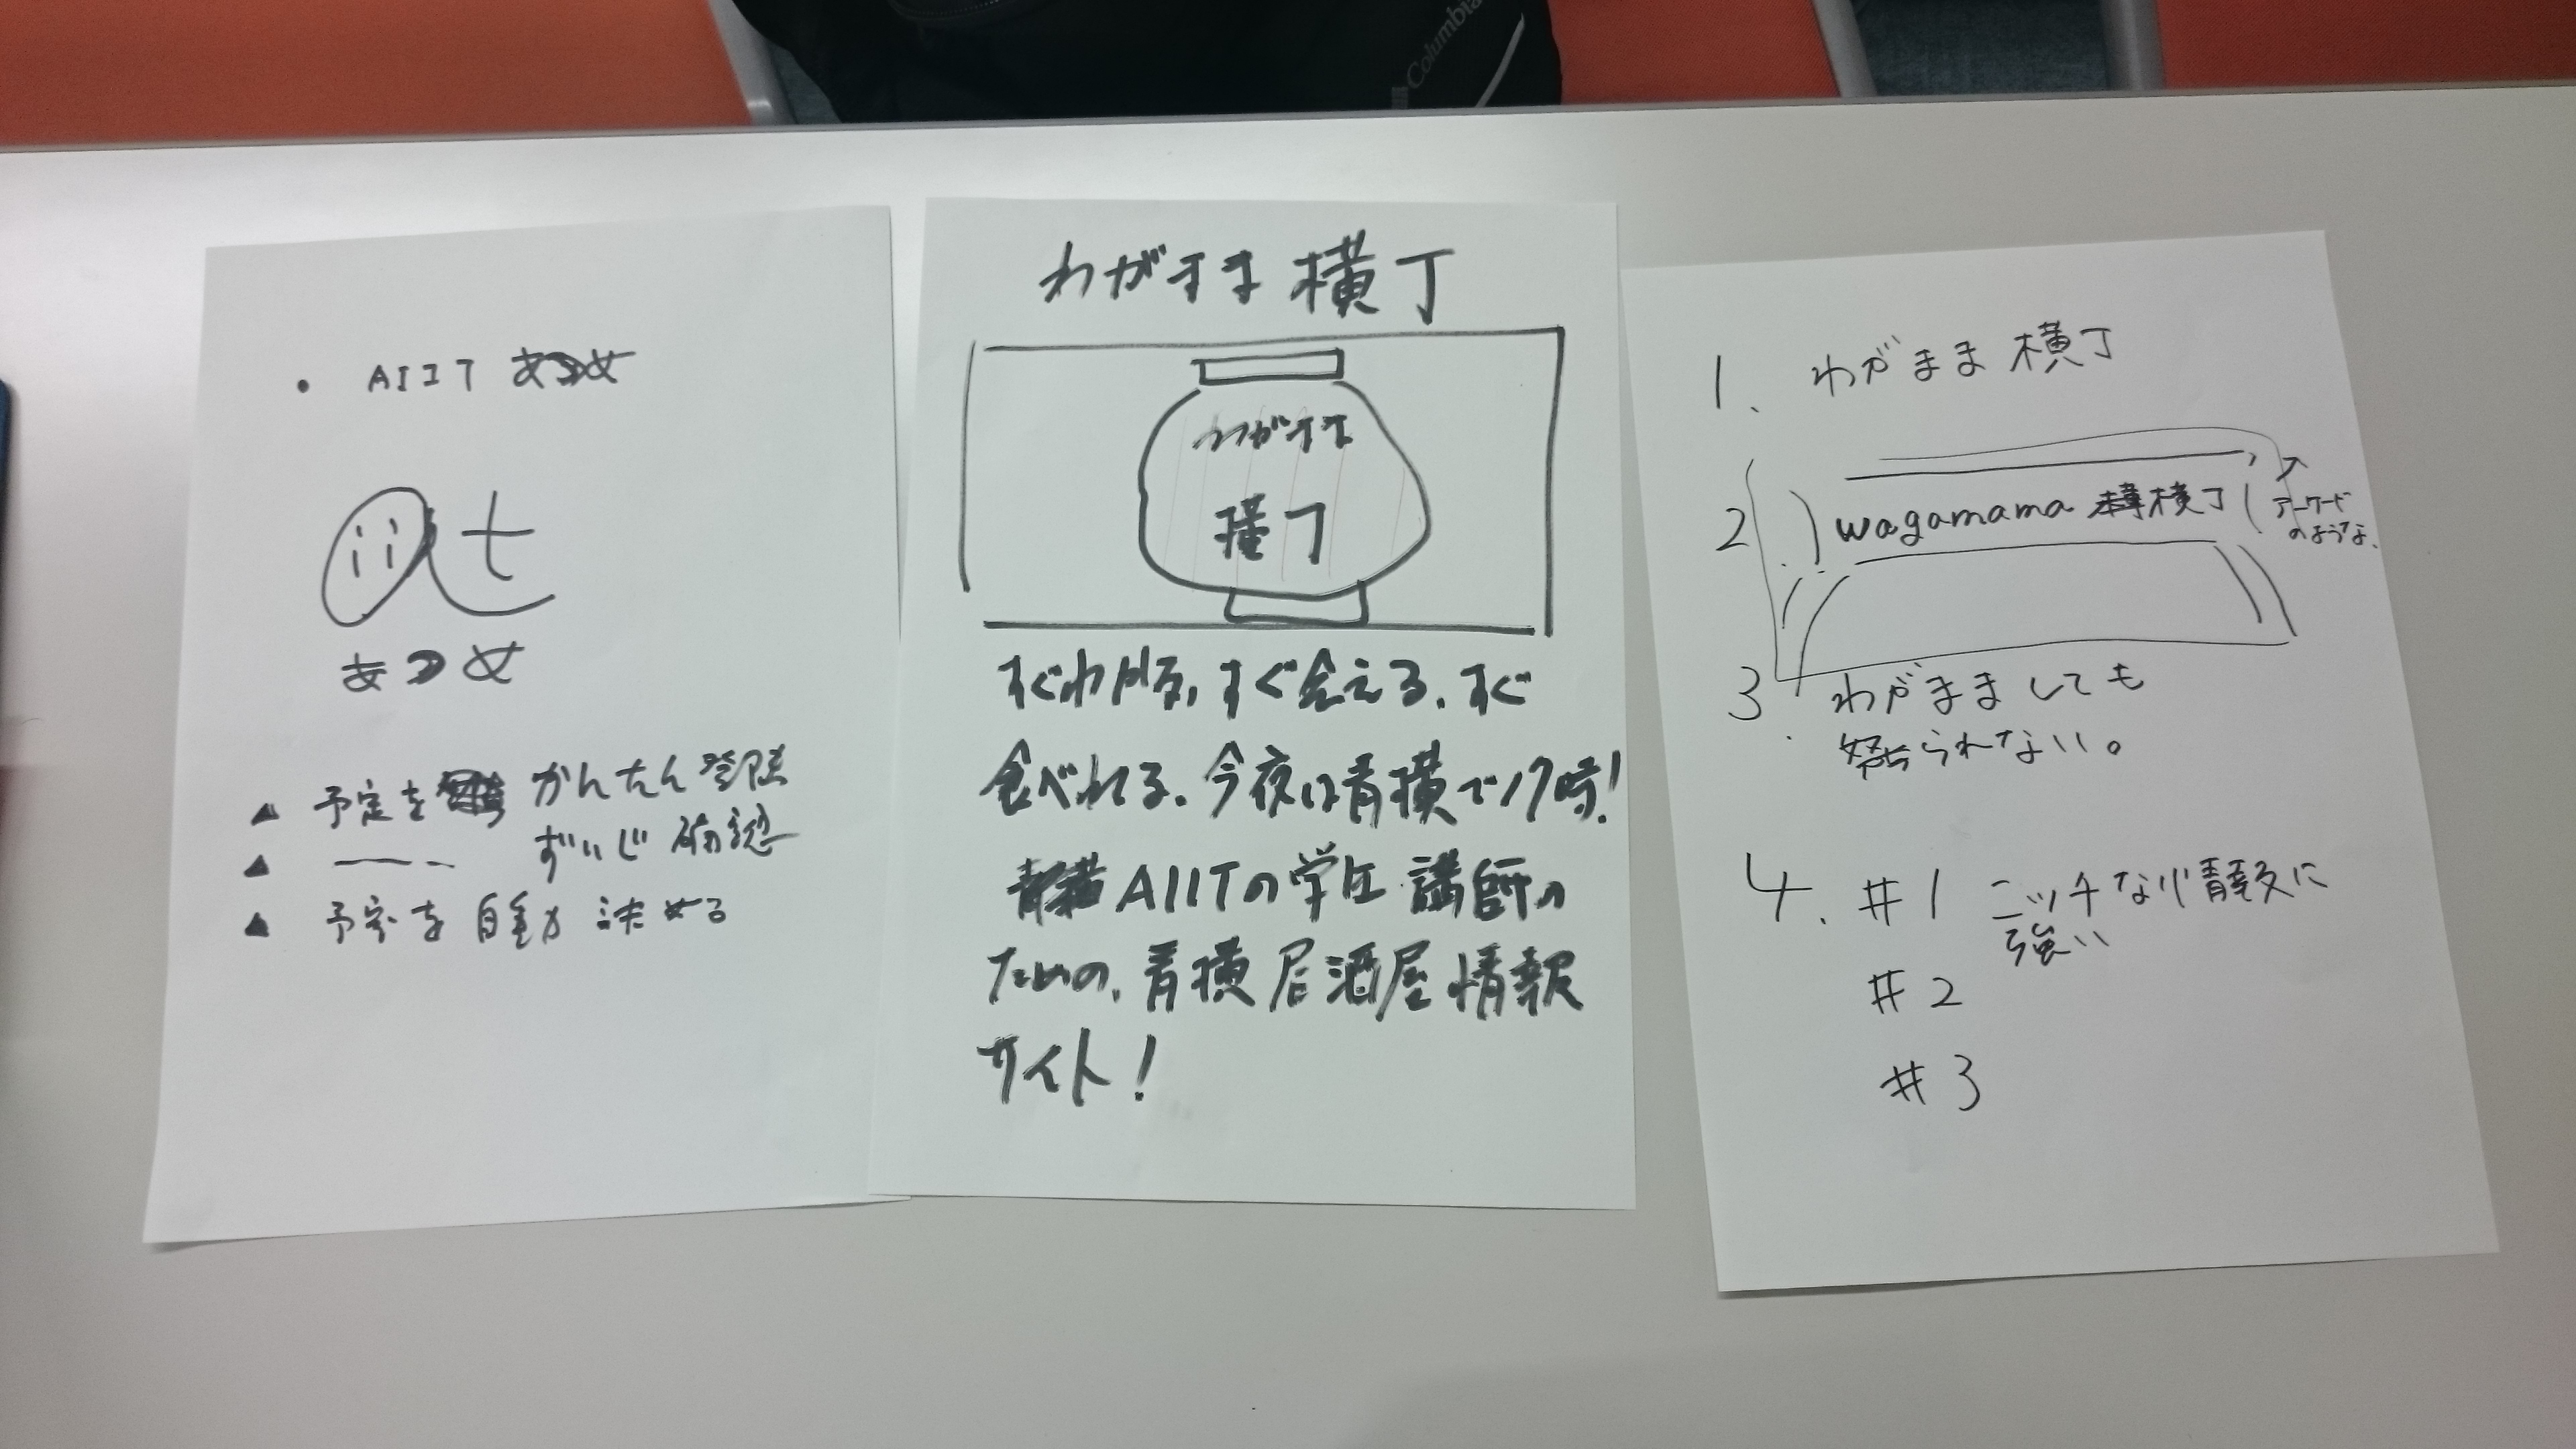 Columbia
・ AIIT あつめ
あつめ
▲ 予定を かんたん 登録
▲ ーー- ずいじ 確認
▲ 予定を 自動 決める
わがまま 横丁
わがまま
横丁
すぐわかる, すぐ会える. すぐ
食べれる. 今夜は青横で17時!
AIITの学生 講師の
ための, 青横 居酒屋 情報
サイト!
1. わがまま 横丁
2. wagamama 横丁
アーケード
のような.
3. わがまましても
怒られない。
4. #1 ニッチな情報に
強い
#2
#3